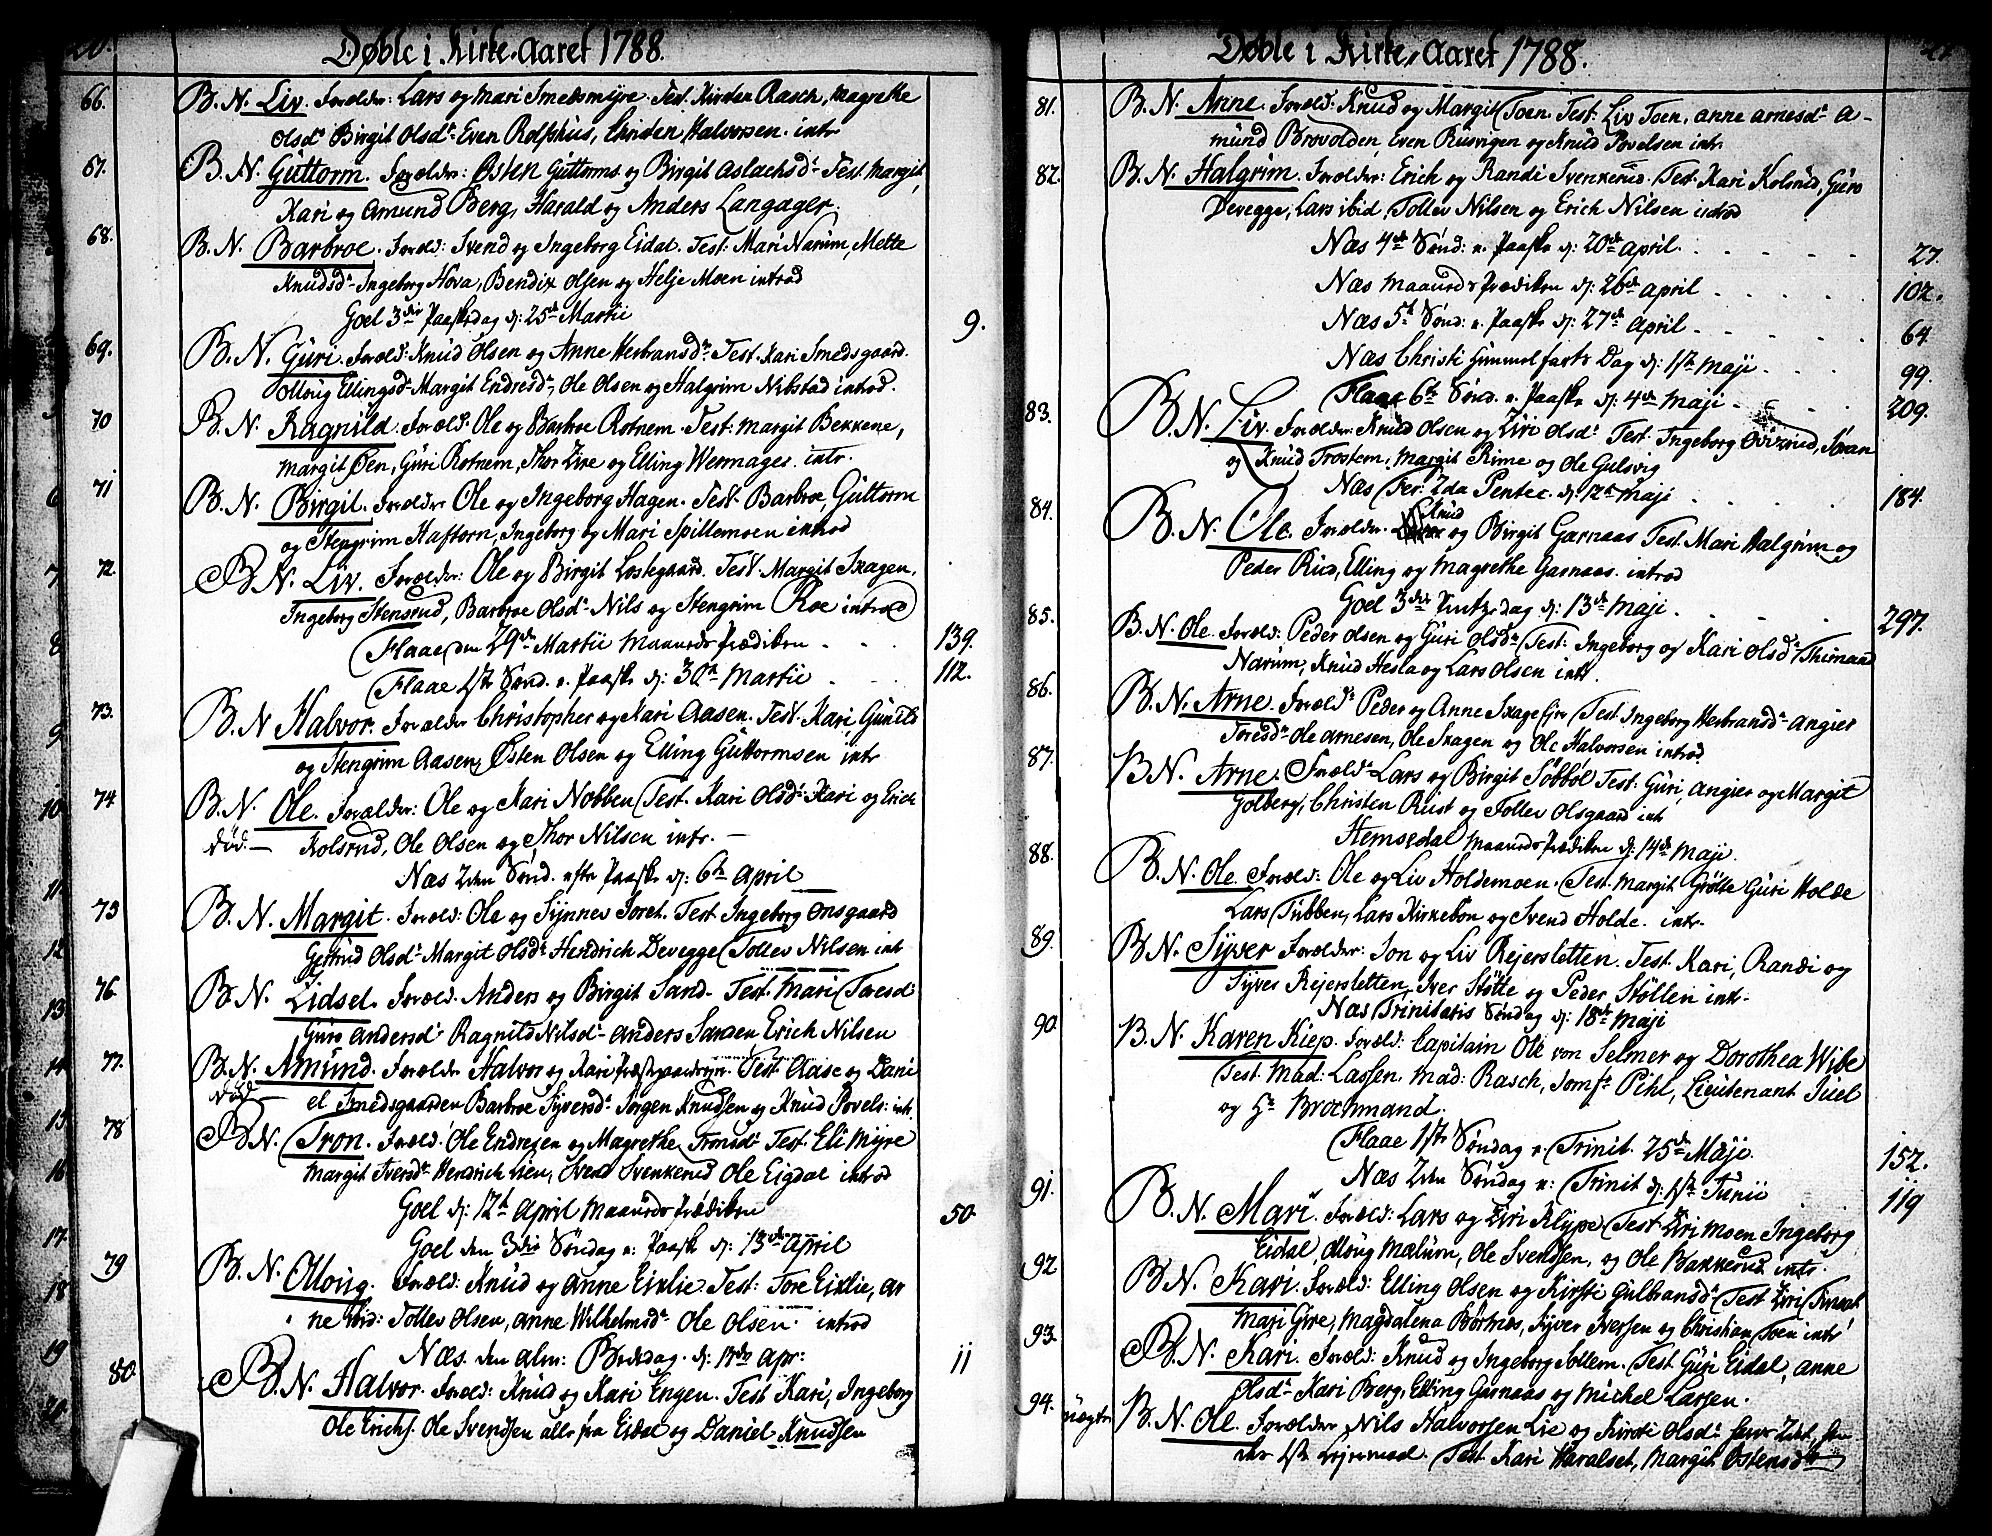 20.
Døbte i Kirke-Aaret 1788.
66. B. N. Liv. Foræld: Lars og Mari Smedsmyre. Test. Kirsten Rasch, Magrethe
Olsd: Birgit Olsd: Even Rolfshus, Christen Halvorsen. intr
67. B. N. Guttorm. Forælder: Østen Guttorms og Birgit Aslachsd: Test. Margit,
Kari og Amund Berg, Harald og Anders Langager.
68. B. N. Barbroe. Foræld: Svend og Ingeborg Eidal. Test. Mari Narum, Mette
Knudsd: Ingeborg Hova, Bendix Olsen og Helje Moen introd
Goel 3die Paaskedag d: 25de Martii 9.
69. B. N. Guri. Foræld: Knud Olsen og Anne Herbransd: Test. Kari Smedsgaard.
Olloug Ellingsd: Margit Endresd: Ole Olsen og Halgrim Nibstad introd.
70 B. N. Ragnild. Foræld: Ole og Barbroe Rotnem. Test: Margit Bekkene,
Margit Øen, Guri Rotnem, Thor Lire og Elling Wermager. intr.
71 B. N. Birgit. Forælder Ole og Ingeborg Hagen. Test. Barbroe, Guttorm
og Stengrim Haftorn, Ingeborg og Mari Spillemoen introd
72. B. N. Liv. Forælder: Ole og Birgit Loskgaard. Test. Margit Skagen,
Ingeborg Stensrud, Barbroe Olsd: Nils og Stengrim Roe introd
Flaae den 29de Martii Maaneds Prædiken 139.
Flaae 1ste Sønd. e. Paaske d: 30te Martii 112.
73. B. N Halvor. Forælder Christopher og Kari Aasen. Test. Kari, Gunild
og Stengrim Aasen, Østen Olsen og Elling Guttormsen intr
74 B. N. Ole. Forælder: Ole og Kari Nobben Test. Kari Olsd: Kari og Erich
død.— Kolsrud, Ole Olsen og Thor Nilsen intr.—
Næs 2den Sønd. efter Paaske d: 6te April
75 B. N. Margit. Foræld: Ole og Synnev Foret. Test. Ingeborg Onsgaard
Gertrud Olsd: Margit Olsd: Hendrich Devegge Tollev Nilsen int
76. B. N. Lidsel. Foræld. Anders og Birgit Sand. Test. Mari Toresd
Guro Andersd: Ragnild Nilsd: Anders Sanden Erich Nilsen
77. B. N. Amund. Forælder Halvor og Kari Test. Aase og Dani
død— el Smedsgaarden Barbroe Syversd: Jørgen Knudsen og Knud Povels: intr.
78 B N. Tron. Foræld: Ole Endresen og Magrethe Tronsd: Test. Eli Myre
Margit Iversd: Hendrich Lien, Svend Svenkerud Ole Eigdal introd
Goel d: 12te April Maaneds Prædiken 50.
Goel den 3die Søndag e: Paaske d: 13de April
79 B. N. Olloug. Foræld: Knud og Anne Eixlie. Test: Tore Eixlie, An
ne ibid: Tollev Olsen, Anne Wilhelmsd: Ole Olsen. introd
Næs. den alm: Bededag. d: 18de Apr: 11
80. B. N. Halvor. Foræld: Knud og Kari Engen. Test Kari, Ingeborg
Ole Erichs. Ole Svendsen alle fra Eidal og Daniel Knudsen
Døbte i Kirke-Aaret 1788. 21
81. B. N. Arne. Foræld: Knud og Margit Toen. Test: Liv Toen. Anne Arnesd: A-
mund Brovolden, Even Rusvigen og Knud Povelsen intr.
82. B. N. Halgrim. Forælder: Erich og Randi Svenkerud. Test. Kari Kolsrud, Guro
Devegge, Lars ibid, Tollev Nilsen og Erich Nilsen introd
Næs 4de Sønd: e. Paaske d: 20de April. 27.
Næs Maaneds Prædiken d: 26de April 102.
Næs 5te Sønd: e. Paaske d: 27de April 64.
Næs Christi Himmelfarts Dag d: 1ste Maji 99.
Flaae 6te Sønd. e. Paaske d: 4de Maji 209.
83. B. N. Liv. Forælder: Knud Olsen og Liri Olsd: Test. Ingeborg
og Knud Trostem, Margit Rime og Ole Gulsvig
Næs Fer: 2da Pentec. d: 12te Maji 184.
84. B. N. Ole. Forælder. Knud og Birgit Garnaas Test. Mari Halgrim og
Peder Rud, Elling og Magrethe Garnaas. introd
Goel 3die Pintzedag d: 13de Maji. 297.
85. B. N. Ole. Foræld: Peder Olsen og Guri Olsd: Test: Ingeborg og Kari Olsd:
Narum, Knud Hesla og Lars Olsen intr.
86. B. N. Arne. Foræld: Peder og Anne Skage Test. Ingeborg Herbransd: Angier
Toresd: Ole Arnesen, Ole Skagen og Ole Halvorsen introd
87. B N. Arne. Foræld: Lars og Birgit Søbbøl Test: Guri, Angier og Margit
Golberg, Christen Rust og Tollev Olsgaard int
Hemsedal Maaneds Prædiken d: 14de Maji.
88. B. N. Ole. Foræld: Ole og Liv Holdemoen. Test. Margit Grøtte Guri Holde
Lars Tubben, Lars Kirkebøn og Svend Holde. intr.
89. B. N. Syver Forælder: Jon og Liv Rejersletten. Test. Kari, Randi og
Syver Rejersletten, Iver Støtte og Peder Støllen intr.
Næs Trinitatis Søndag d: 18de Maji
90. B. N. Karen Kiep. Foræld: Capitain Ole von Selmer og Dorothea Wibe
Test. Mad: Lassen. Mad: Rasch, Jomfr Pihl, Lieutenant Juel
og Hr Brochmand.
Flaae 1ste Søndag e. Trinit. 25de Maji. 152.
Næs 2den Søndag e: Trinit d: 1ste Junii 119
91. B. N. Mari. Foræld: Lars og Liri Klype Test. Liri Moen Ingeborg
Eidal, Olloug Mælum, Ole Svendsen, og Ole Bakkerud intr.
92 B N. Kari. Foræld: Elling Olsen og Kirsti Gulbransd: Test Liri
Mari Gire, Magdalena Børtnes, Syver Iversen og Christian Toen intr
93. B. N. Kari. Foræld: Knud og Ingeborg Sollem. Test. Guri Eidal, Anne
Olsd: Kari Berg, Elling Garnaas og Michel Larsen.
94. uægte B. N. Ole. Forælder Nils Halvorsen Lie og Kirsti Olsd:
1ste Lejermaal. Test. Kari Haralset, Margit Østensd:
6 7 8 9 10 11 12 13 14 15 16 17 18 19 20